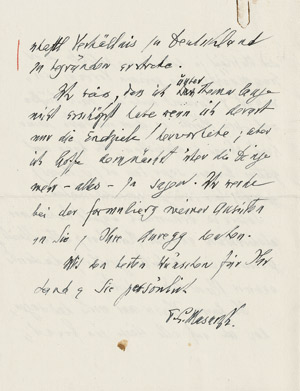 schaftl Verhältnis zu Deutschland
zu begründen erstrebe.
Ich weiss, dass ich unser Thema lange
nicht erschöpft habe wenn ich derart
nur die Endziele hervorhebe, aber
ich hoffe demnächst über die Dinge
mehr – alles – zu sagen. Ich werde
bei der Formulierg meiner Ansichten
an Sie, Ihre Anregg denken.
Mit den besten Wünschen für Ihr
Land u Sie persönlich
T. G. Masaryk.